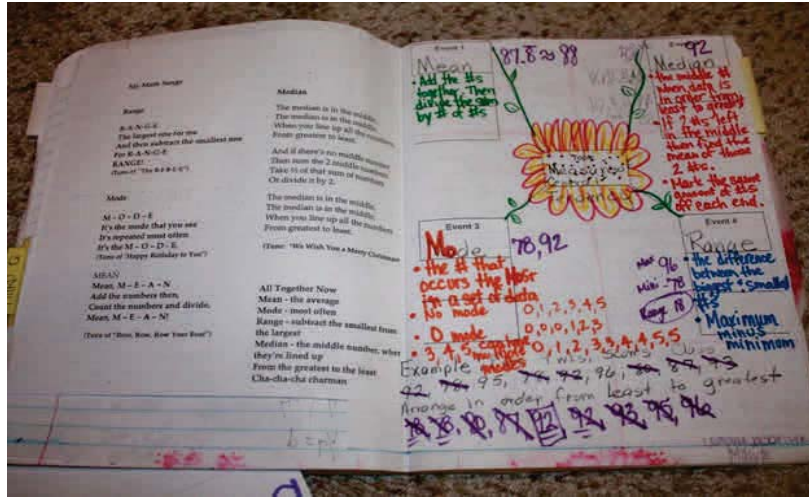 My Math Songs
Range
R-A-N-G-E
The largest one for me
And then subtract the smallest one
For R-A-N-G-E
RANGE!
Mode
M - O - D - E
It's the mode that you see
It's repeated most often
It's the M - O - D - E.
(Tune of "Happy Birthday to You")
MEAN
Mean, M - E - A - N
Add the numbers then,
Count the numbers and divide,
Mean, M - E - A - N!
(Tune of "Row, Row, Row Your Boat")
Median
The median is in the middle,
The median is in the middle,
When you line up all the numbers
From greatest to least.
And if there's no middle number
Then sum the 2 middle numbers
Take ½ of that sum of numbers
Or divide it by 2.
The median is in the middle,
The median is in the middle,
When you line up all the numbers
From greatest to least.
(Tune: "We Wish You a Merry Christmas
All Together Now
Mean - the average
Mode - most often
Range - subtract the smallest from
the largest
Median - the middle number, when
they're lined up
From the greatest to the least
Cha-cha-cha charman
Event 1
87.8 ≈ 88
Mean
• Add the #s
together. Then
divide the sum
by # of #s
92
Median
• the middle #
when data is
in order from
least to greatest
• If 2 #s left
in the middle
then find the
mean of those
2 #s.
• Mark the same
amount of #s
off each end.
Event 3
Mode
78, 92
• the # that
occurs the most
in a set of data
• No mode
0, 1, 2, 3, 4, 5
• 0 mode
0, 0, 0, 1, 2, 3
• 3, 4, 5 can have
multiple
modes
0, 1, 2, 3, 3, 4, 4, 5, 5
Event 4
Range
Max 96
Mini -78
Range 18
• the difference
between the
biggest & smallest
#s
• Maximum
minus
minimum
Example
92, 78, 95, 78, 92, 96, 80, 87, 93
Arrange in order from least to greatest
78, 78, 80, 87, 92, 92, 93, 95, 96